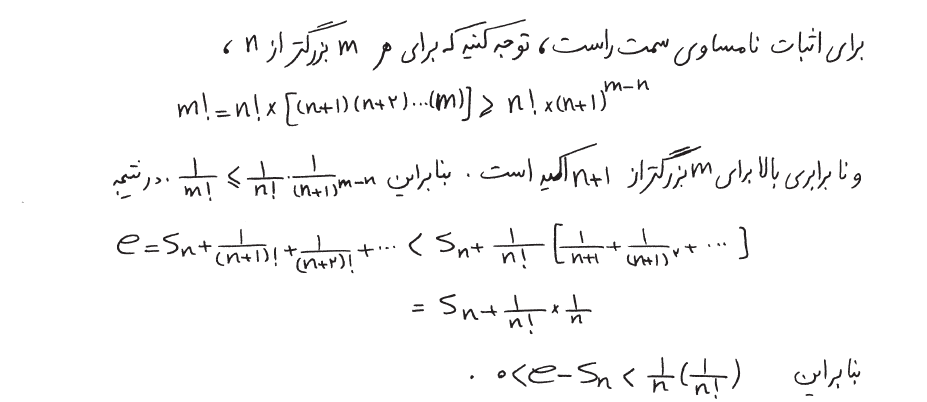 برای اثبات نامساوی سمت راست، توجه کنید که برای هر m بزرگتر از n ،
m! = n! × [(n+1)(n+۲)...(m)] ⩾ n! × (n+1)^{m-n}
و نا برابری بالا برای m بزرگتر از n+1 اکید است . بنابراین 1/m! ⩽ 1/n! · 1/(n+1)^{m-n} . در نتیجه
e = Sn + 1/(n+1)! + 1/(n+۲)! + ... < Sn + 1/n! [1/(n+1) + 1/(n+1)^۲ + ...]
= Sn + 1/n! × 1/n
بنابراین ۰ < e - Sn < 1/n (1/n!) .